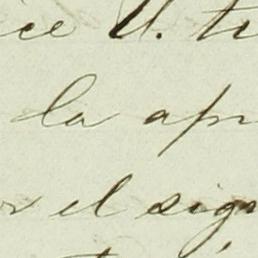 ice U. te
la apr
r el sign